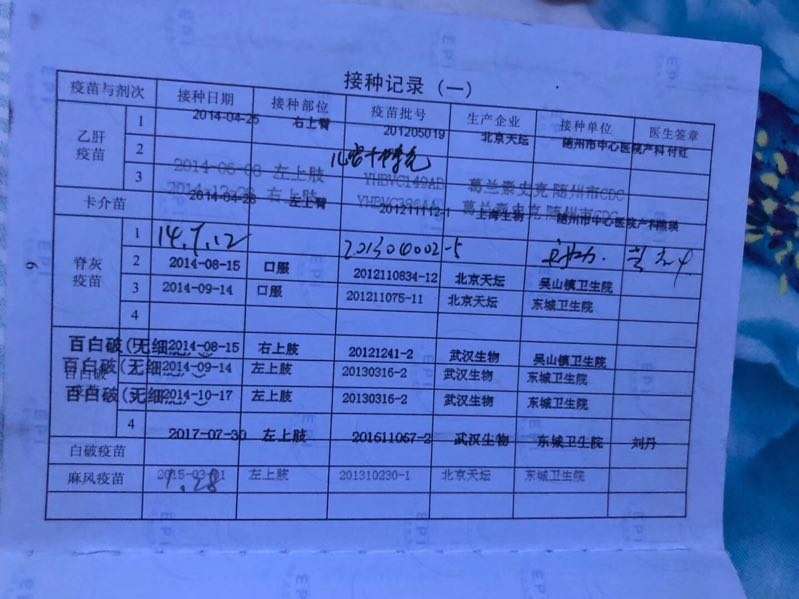 接种记录（一）
疫苗与剂次 接种日期 接种部位 疫苗批号 生产企业 接种单位 医生签章
乙肝疫苗 1 2014-04-25 右上臂 201205019 北京天坛 随州市中心医院产科 付红
2 2014-06-08 左上肢 YHBVC149AB 葛兰素史克 随州市CDC
3 右上肢 葛兰素史克 随州市CDC
卡介苗 左上臂 201211112-1 上海生物 随州市中心医院产科
脊灰疫苗 1 14.7.12 201304002-5
2 2014-08-15 口服 2012110834-12 北京天坛 吴山镇卫生院
3 2014-09-14 口服 201211075-11 北京天坛 东城卫生院
4
百白破(无细 2014-08-15 右上肢 20121241-2 武汉生物 吴山镇卫生院
百白破(无细 2014-09-14 左上肢 20130316-2 武汉生物 东城卫生院
百白破(无细 2014-10-17 左上肢 20130316-2 武汉生物 东城卫生院
4 2017-07-30 左上肢 201611057-2 武汉生物 东城卫生院 刘丹
白破疫苗
麻风疫苗 1.28 左上肢 201310230-1 北京天坛 东城卫生院
9